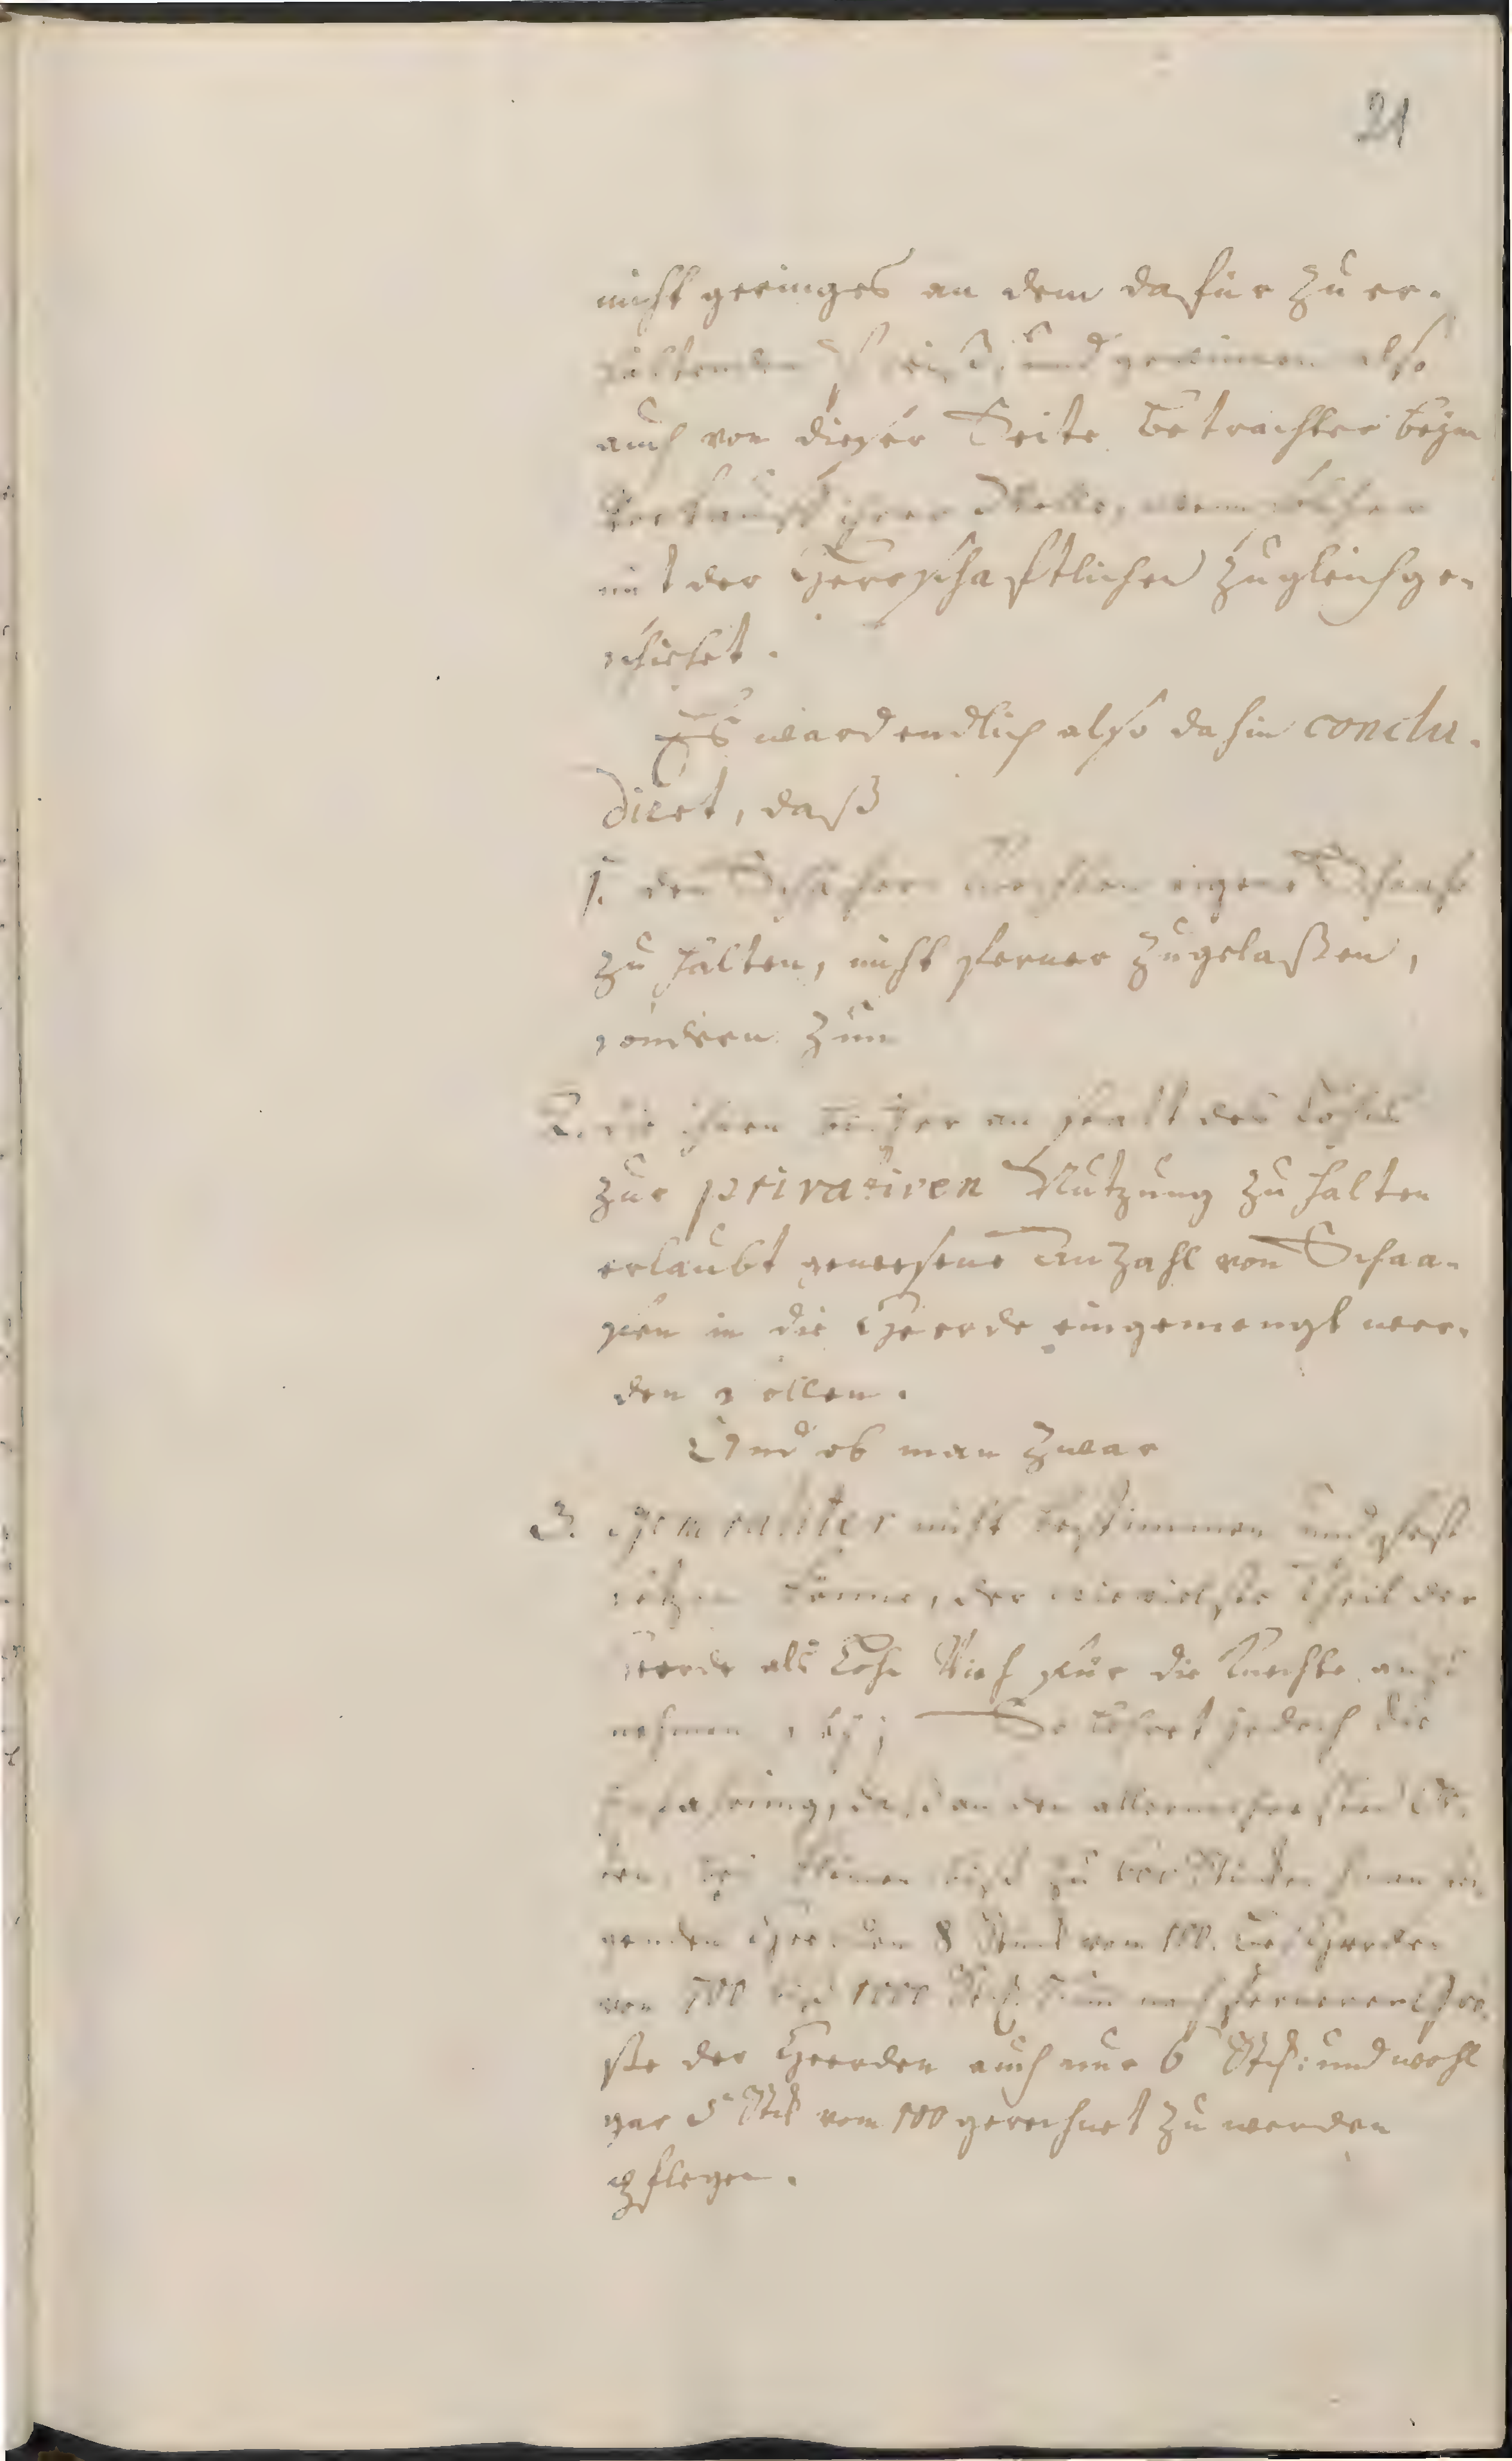 21
nicht geringes an dem dafür zu er-
haltenden Preiß, und gewinnen also
auch von dieser Seite betrachtet beym
Verkauff ihrer Wolle, wenn solche
mit der Herrschafftlichen zugleich ge-
schiehet.
Es ward endlich also dahin conclu-
diert, daß
1. den Schäfer Knechten eigene Schaafe
zu halten, nicht ferner zugelaßen,
sondern zum
2. die ihnen bisher an statt des Lohns
zur privativen Nutzung zu halten
erlaubt gewesene Anzahl von Schaa-
fen in die Heerde eingemengt wer-
den sollen.
Und ob man zwar
3. generaliter nicht bestimmen und fest
setzen könne, der wievielste Theil der
Heerde als Lohn Vieh für die Knechte anzu
nehmen sey; So lehret jedoch die
Erfahrung, daß an den allermehresten Or-
ten, bey kleinen biß zu
Heerden 8 Stück vom 100. bey Heerden
von 700 biß 1000 Stck. und nach fernerer Grö-
ße der Heerden auch nur 6 Stck: und wohl
gar 5 Stck vom 100 gerechnet zu werden
pflegen.